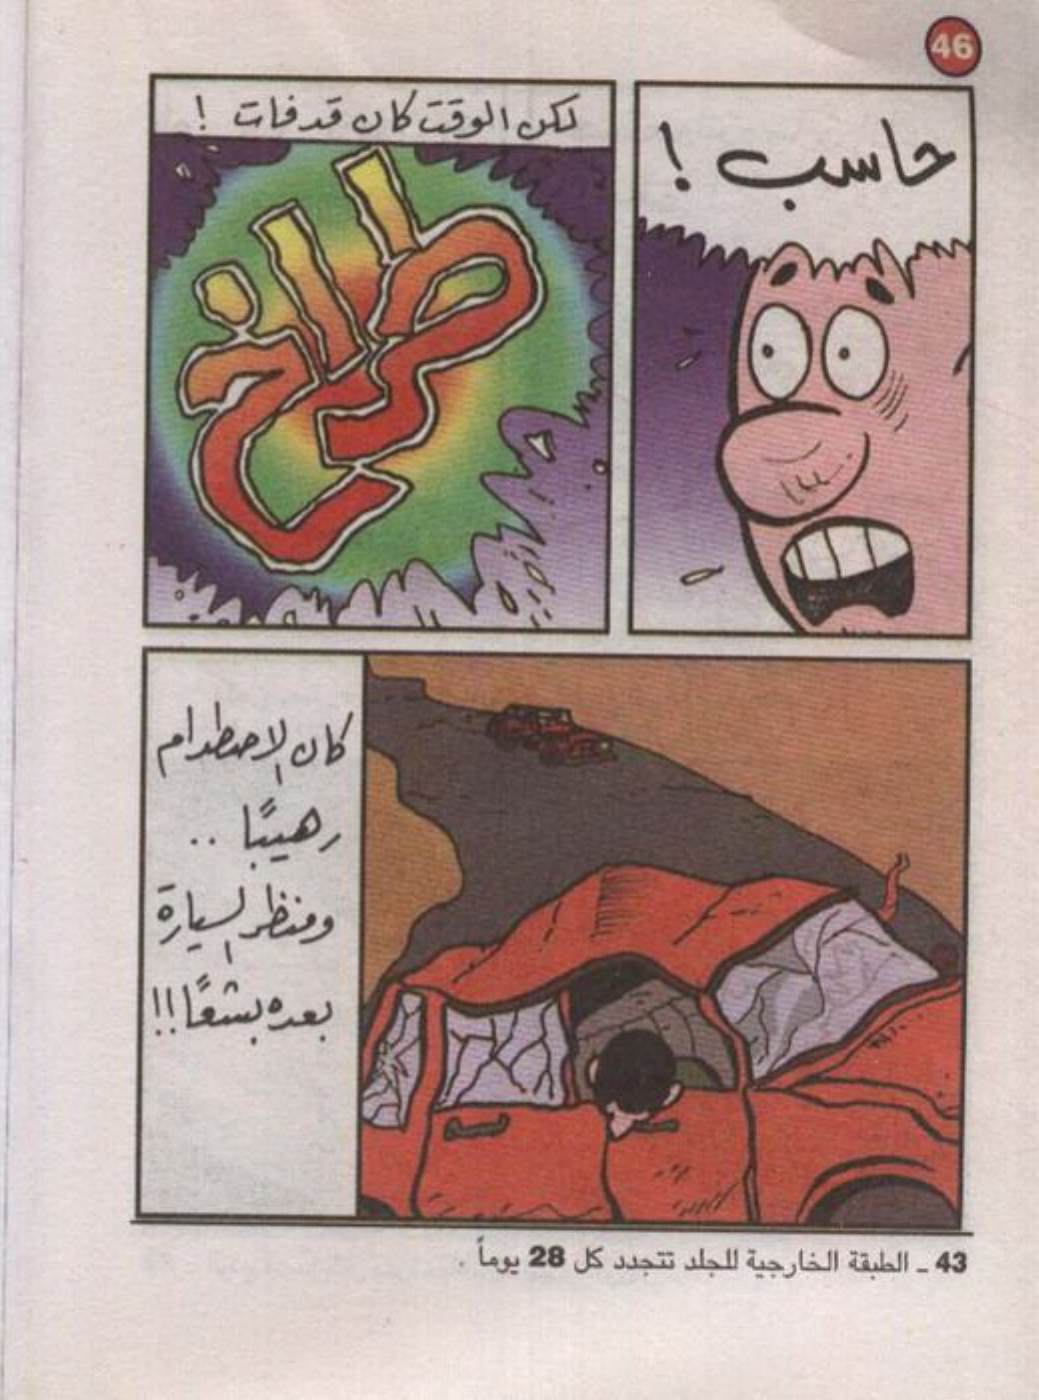 46
حاسب !
لكن الوقت كان قد فات !
طراخ
كان الاصطدام
رهيبًا ..
ومنظر السيارة
بعده بشعًا !!
43 ـ الطبقة الخارجية للجلد تتجدد كل 28 يوماً .